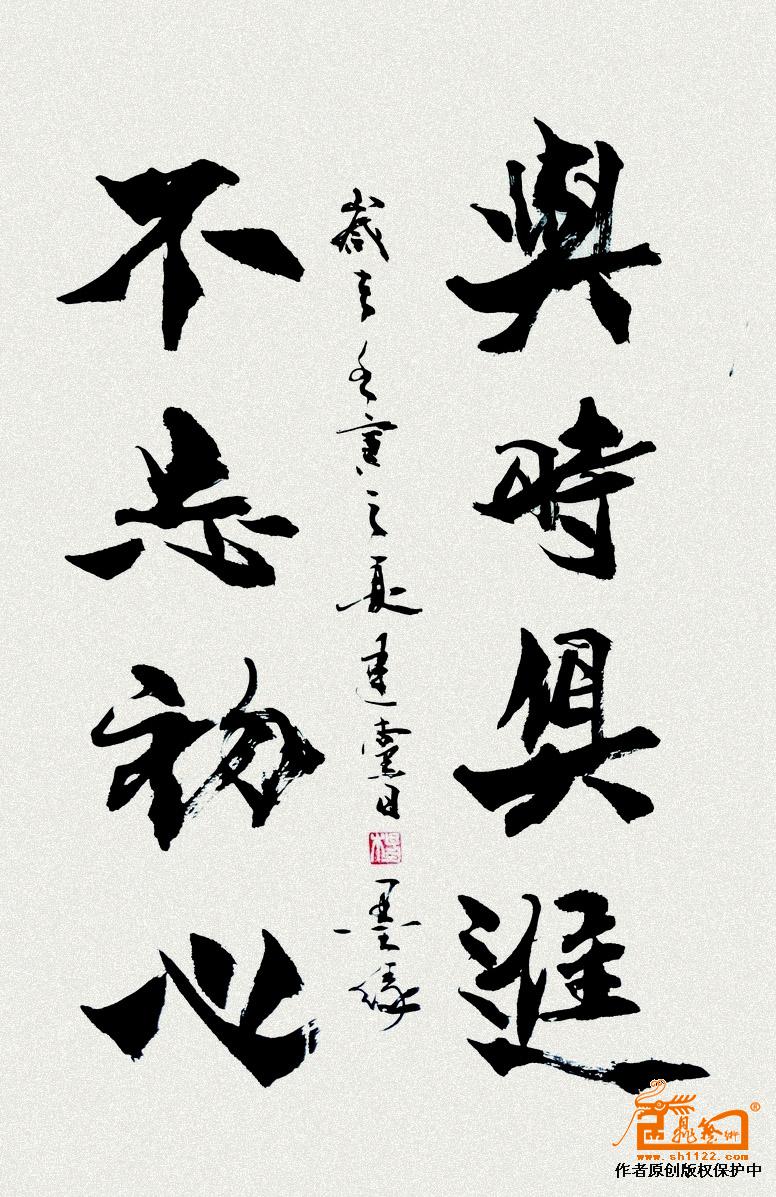 與時俱進
歲在壬寅之夏建黨日
楊
墨緣
不忘初心
®
www.sh1122.com
作者原创版权保护中